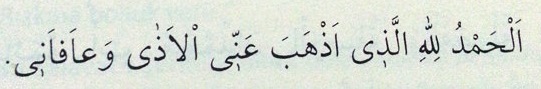 اَلْحَمْدُ لِلّٰهِ الَّذِى اَذْهَبَ عَنِّى اْلاَذٰى وَعاَفاَنِى.